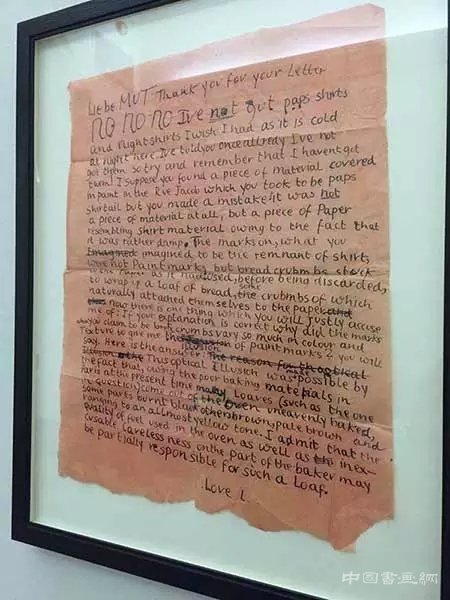 Liebe MUT Thank you for your Letter
NO NO NO Ive not got paps shirts
and nightshirts I wish I had as it is cold
at night here Ive told you once allredy I've not
got them so try and remember that I havent got
them! I suppose you found a piece of material covered
in paint in the Rue Jacob which you took to be paps
shirtail but you made a mistake it was not
a piece of material at all, but a piece of Paper
resembling shirt material owing to the fact that
it was rather damp. The marks on, what you
Imagined imagined to be the remnant of shirt,
were not Paint marks, but bread crubmbs stuck
as it had used, before being discarded,
to wrap a loaf of bread, some the crubmbs of which
naturally attained themselves to the paper and
now there is one thing which you will justly accuse
me of: If your explanation is correct why did the marks
which you claim to be bread crumbs vary so much in colour and
Texture to give me the illusion of paint marks? you will
say. Here is the answer: The reason for the optical
illusion This optical illusion was made possible by
the fact that, owing the poor baking materials in
Paris at the present time many loaves (such as the one
in question) come out of the oven unevenly baked,
some parts burnt black others brown, pale brown and
ranging to an allmost yellow tone. I admit that the
quality of fuel used in the oven as well as the inex-
cusable carelessness on the part of the baker may
be partially responsible for such a loaf.
Love L.
中国書画網